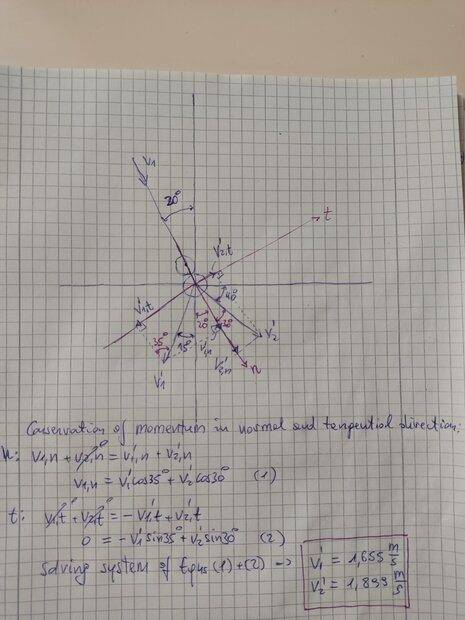 V1
20°
t
V'2,t
V'1,t
40°
20°
30°
V'2
35°
15°
V'1,n
V'1
V'2,n
n
Conservation of momentum in normal and tangential direction:
n: V1,n + V2,n = V'1,n + V'2,n
V1,n = V'1 cos35° + V'2 cos30° (1)
t: V1,t + V2,t = -V'1,t + V'2,t
0 = -V'1 sin35° + V'2 sin30° (2)
Solving system of Eqns (1)+(2) =>
V'1 = 1,655 m/s
V'2 = 1,899 m/s